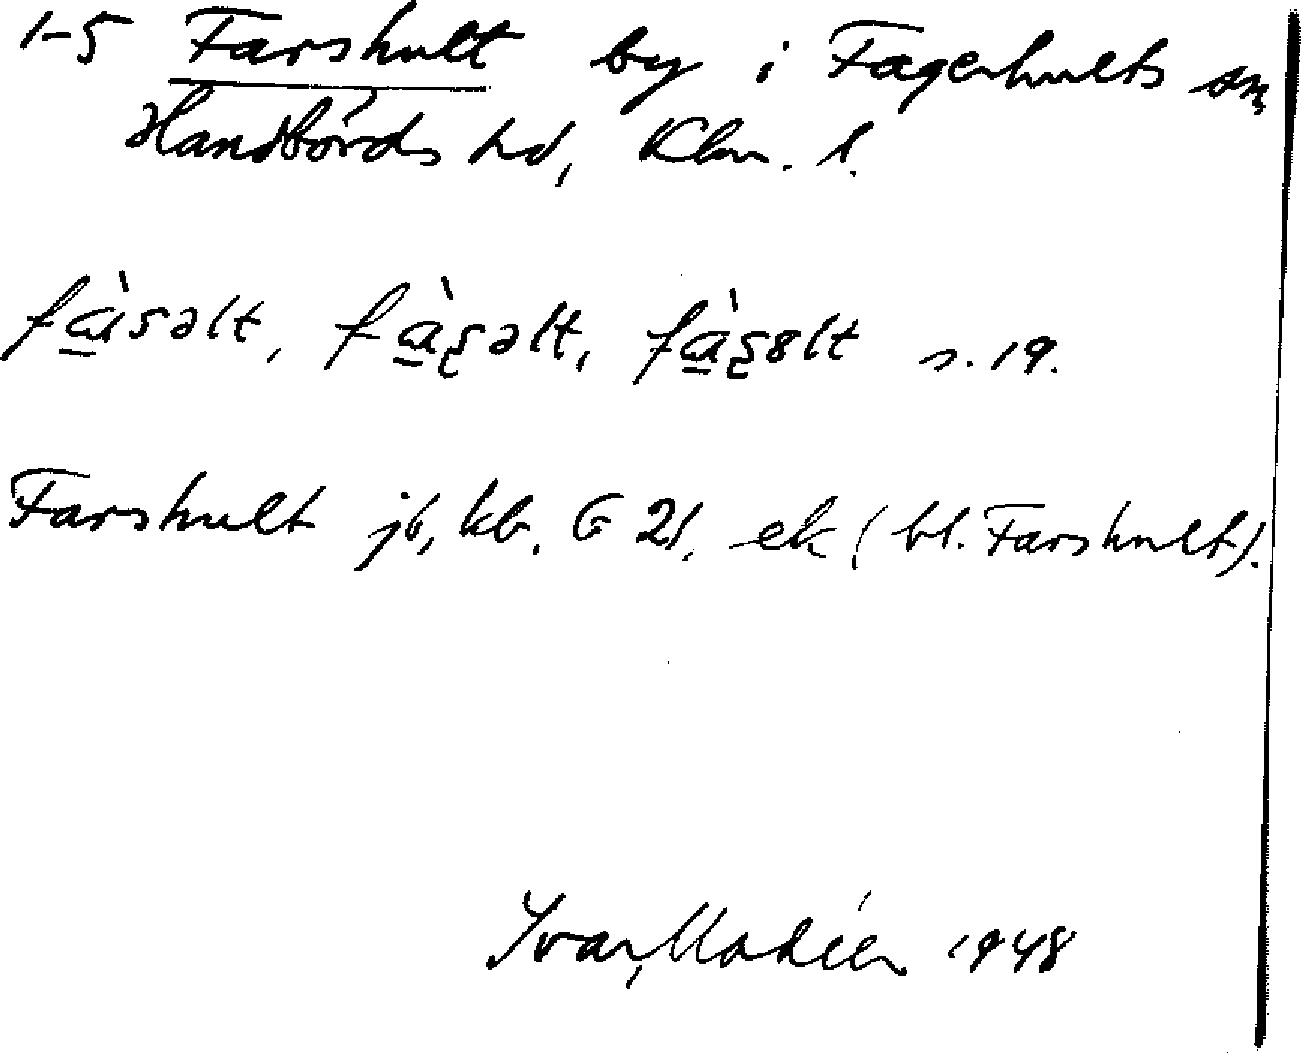 1-5 Farshult by i Fagerhults sn
Handbörds hd, Klm. l.
fàsəlt, fàʂəlt, fàʂɵlt s. 19.
Farshult jb, kb. G 21. ek (bl. Farshult).
Ivar Modéer 1948